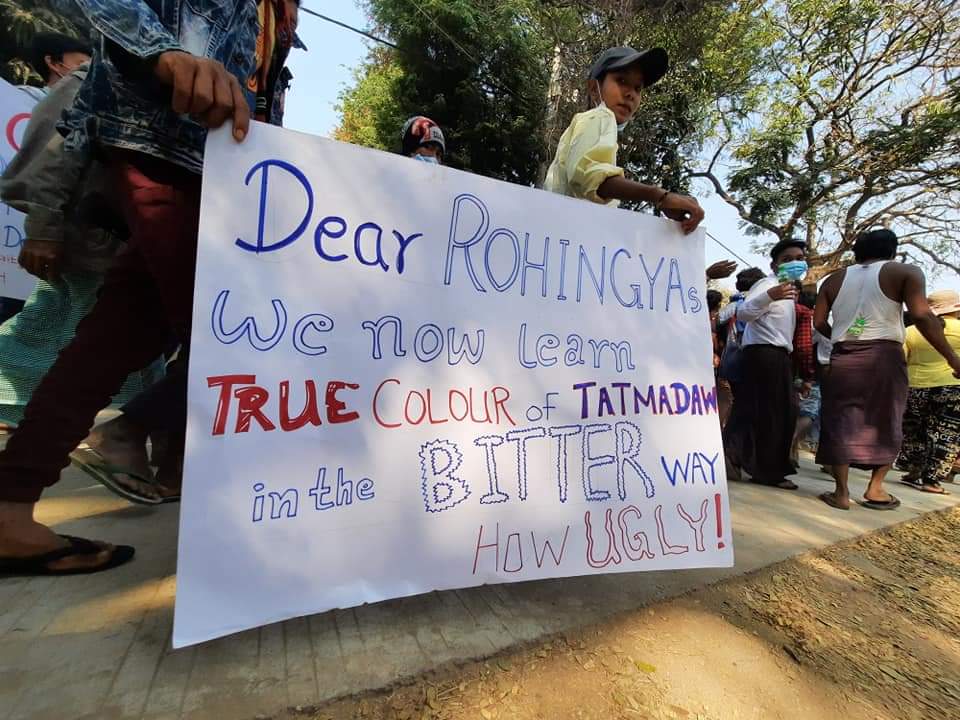 Dear ROHINGYAs
We now learn
TRUE COLOUR of TATMADAW
in the BITTER WAY
HOW UGLY!